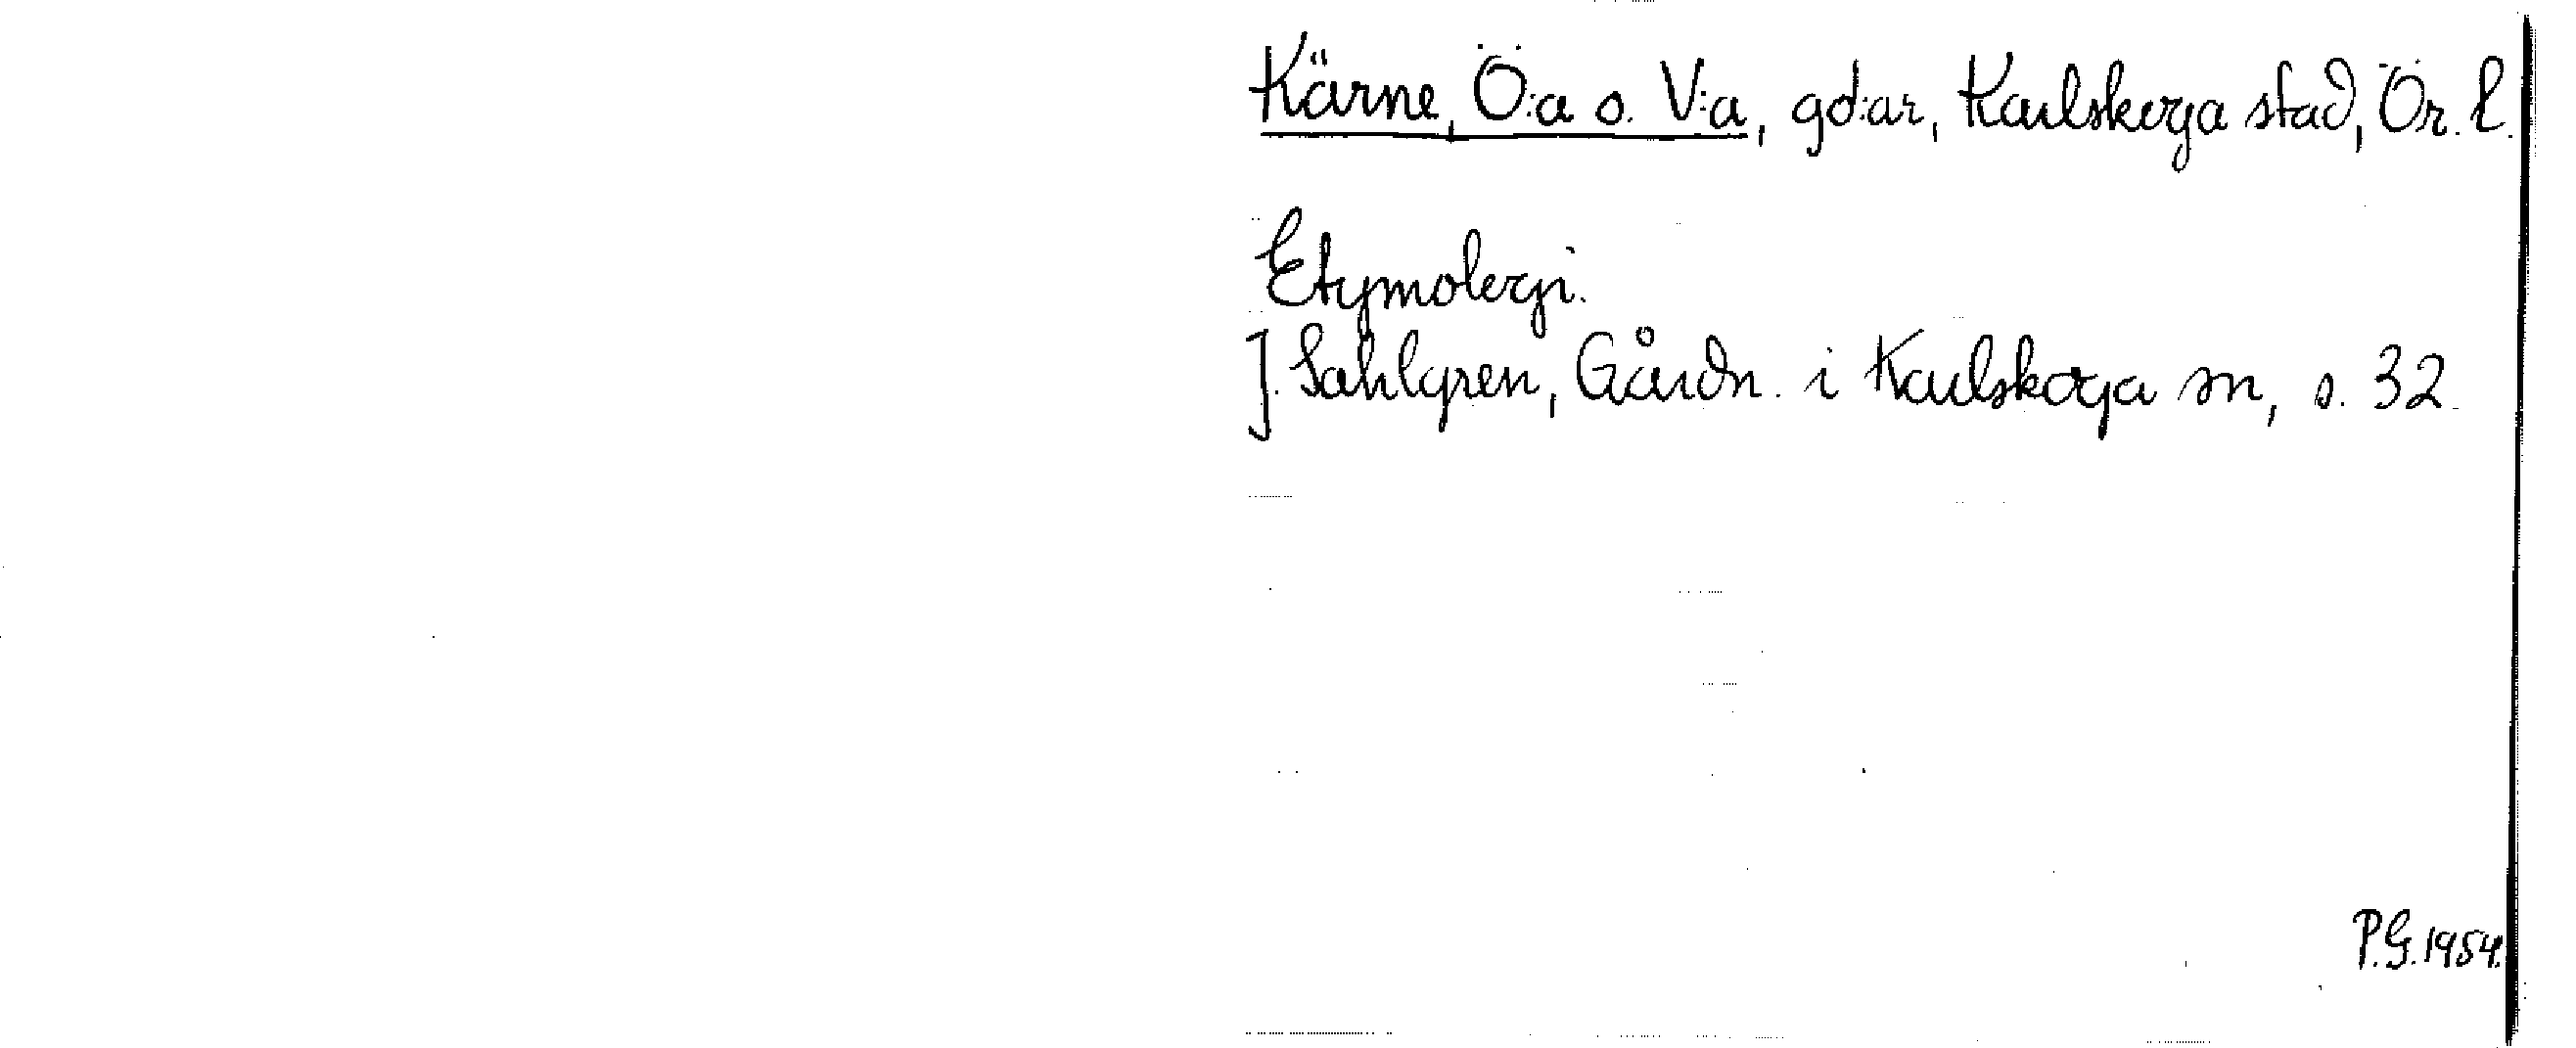 Kärne, Ö:a o. V:a, gd:ar, Karlskoga stad, Ör. l.
Etymologi.
J. Sahlgren, Gårdn. i Karlskoga sn, s. 32.
P.G. 1954.